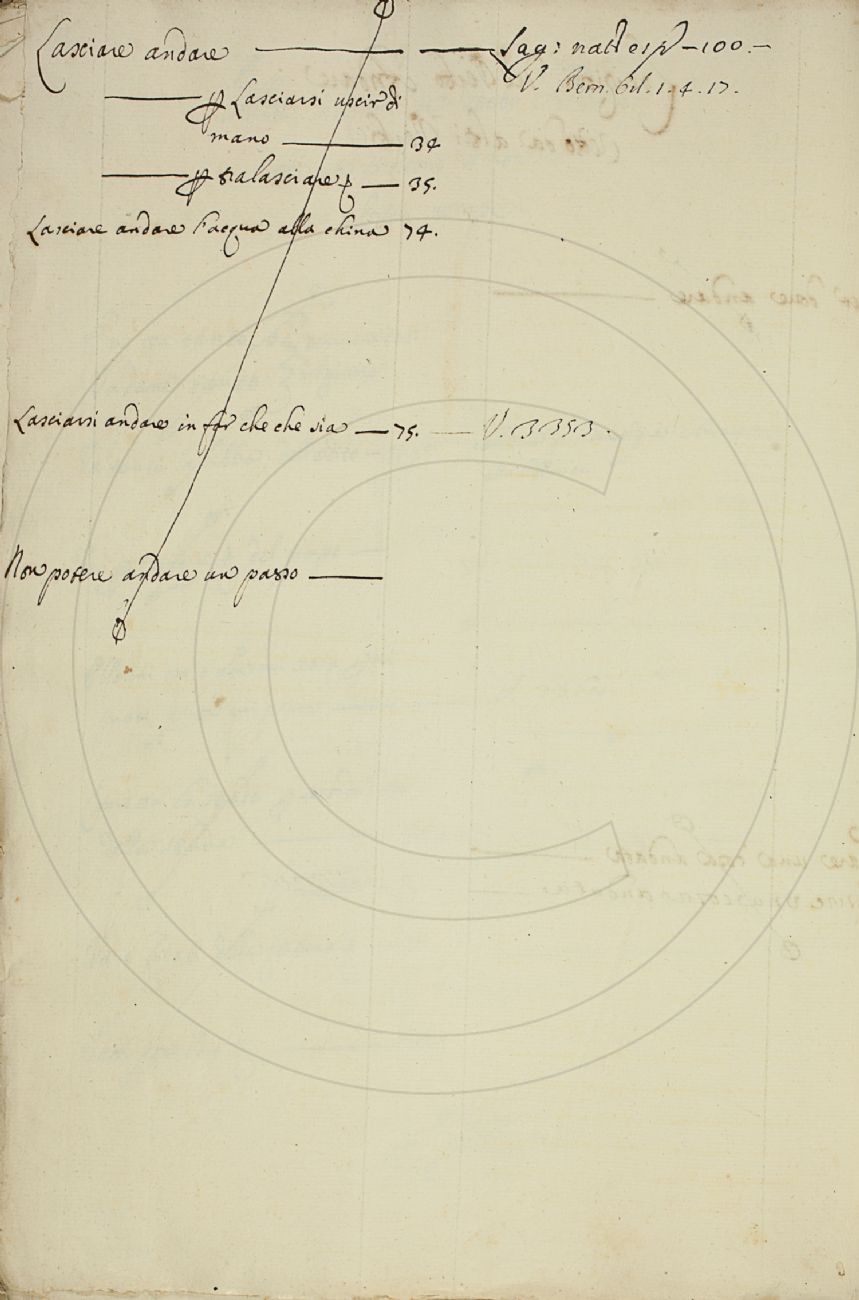 Lasciare andare ——— ——— Sag: nat. esp. — 100. —
V. Bern. Orl. 1. 4. 17.
——— p Lasciarsi uscir di
mano ——— 34
——— p tralasciare ——— 35.
Lasciare andare l'acqua alla china 74.
Lasciarsi andare in far che che sia — 75. — V. 3353.
Non potere andare un passo ———